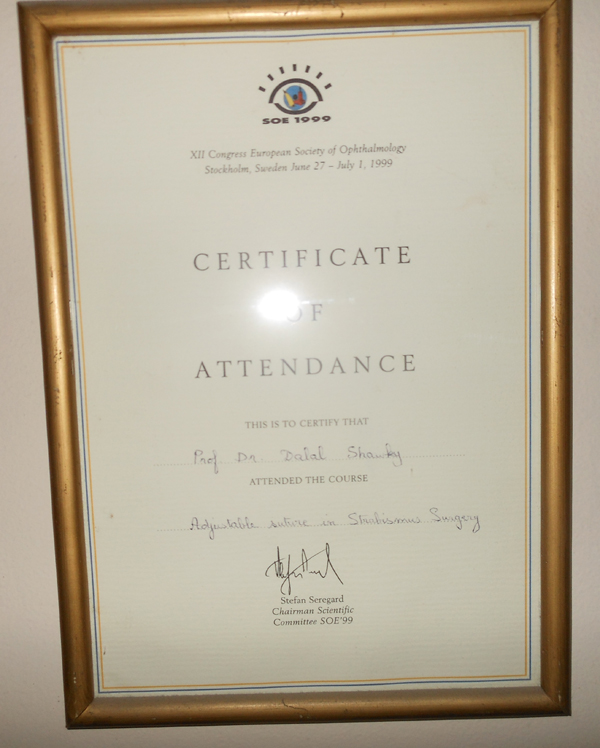 SOE 1999
XII Congress European Society of Ophthalmology
Stockholm, Sweden June 27 – July 1, 1999
CERTIFICATE
OF
ATTENDANCE
THIS IS TO CERTIFY THAT
Prof. Dr. Dalal Shawky
ATTENDED THE COURSE
Adjustable suture in Strabismus Surgery
Stefan Seregard
Chairman Scientific
Committee SOE'99